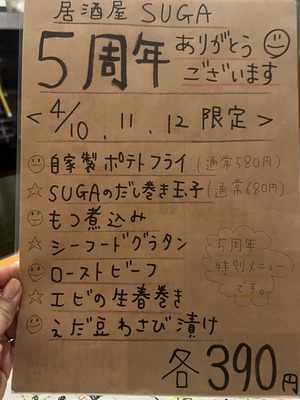 居酒屋 SUGA
5周年 ありがとう
ございます
<4/10, 11, 12 限定>
自家製ポテトフライ (通常580円)
SUGAのだし巻き玉子 (通常680円)
もつ煮込み
シーフードグラタン
ローストビーフ
エビの生春巻き
えだ豆わさび漬け
5周年
特別メニュー
です。
各390円